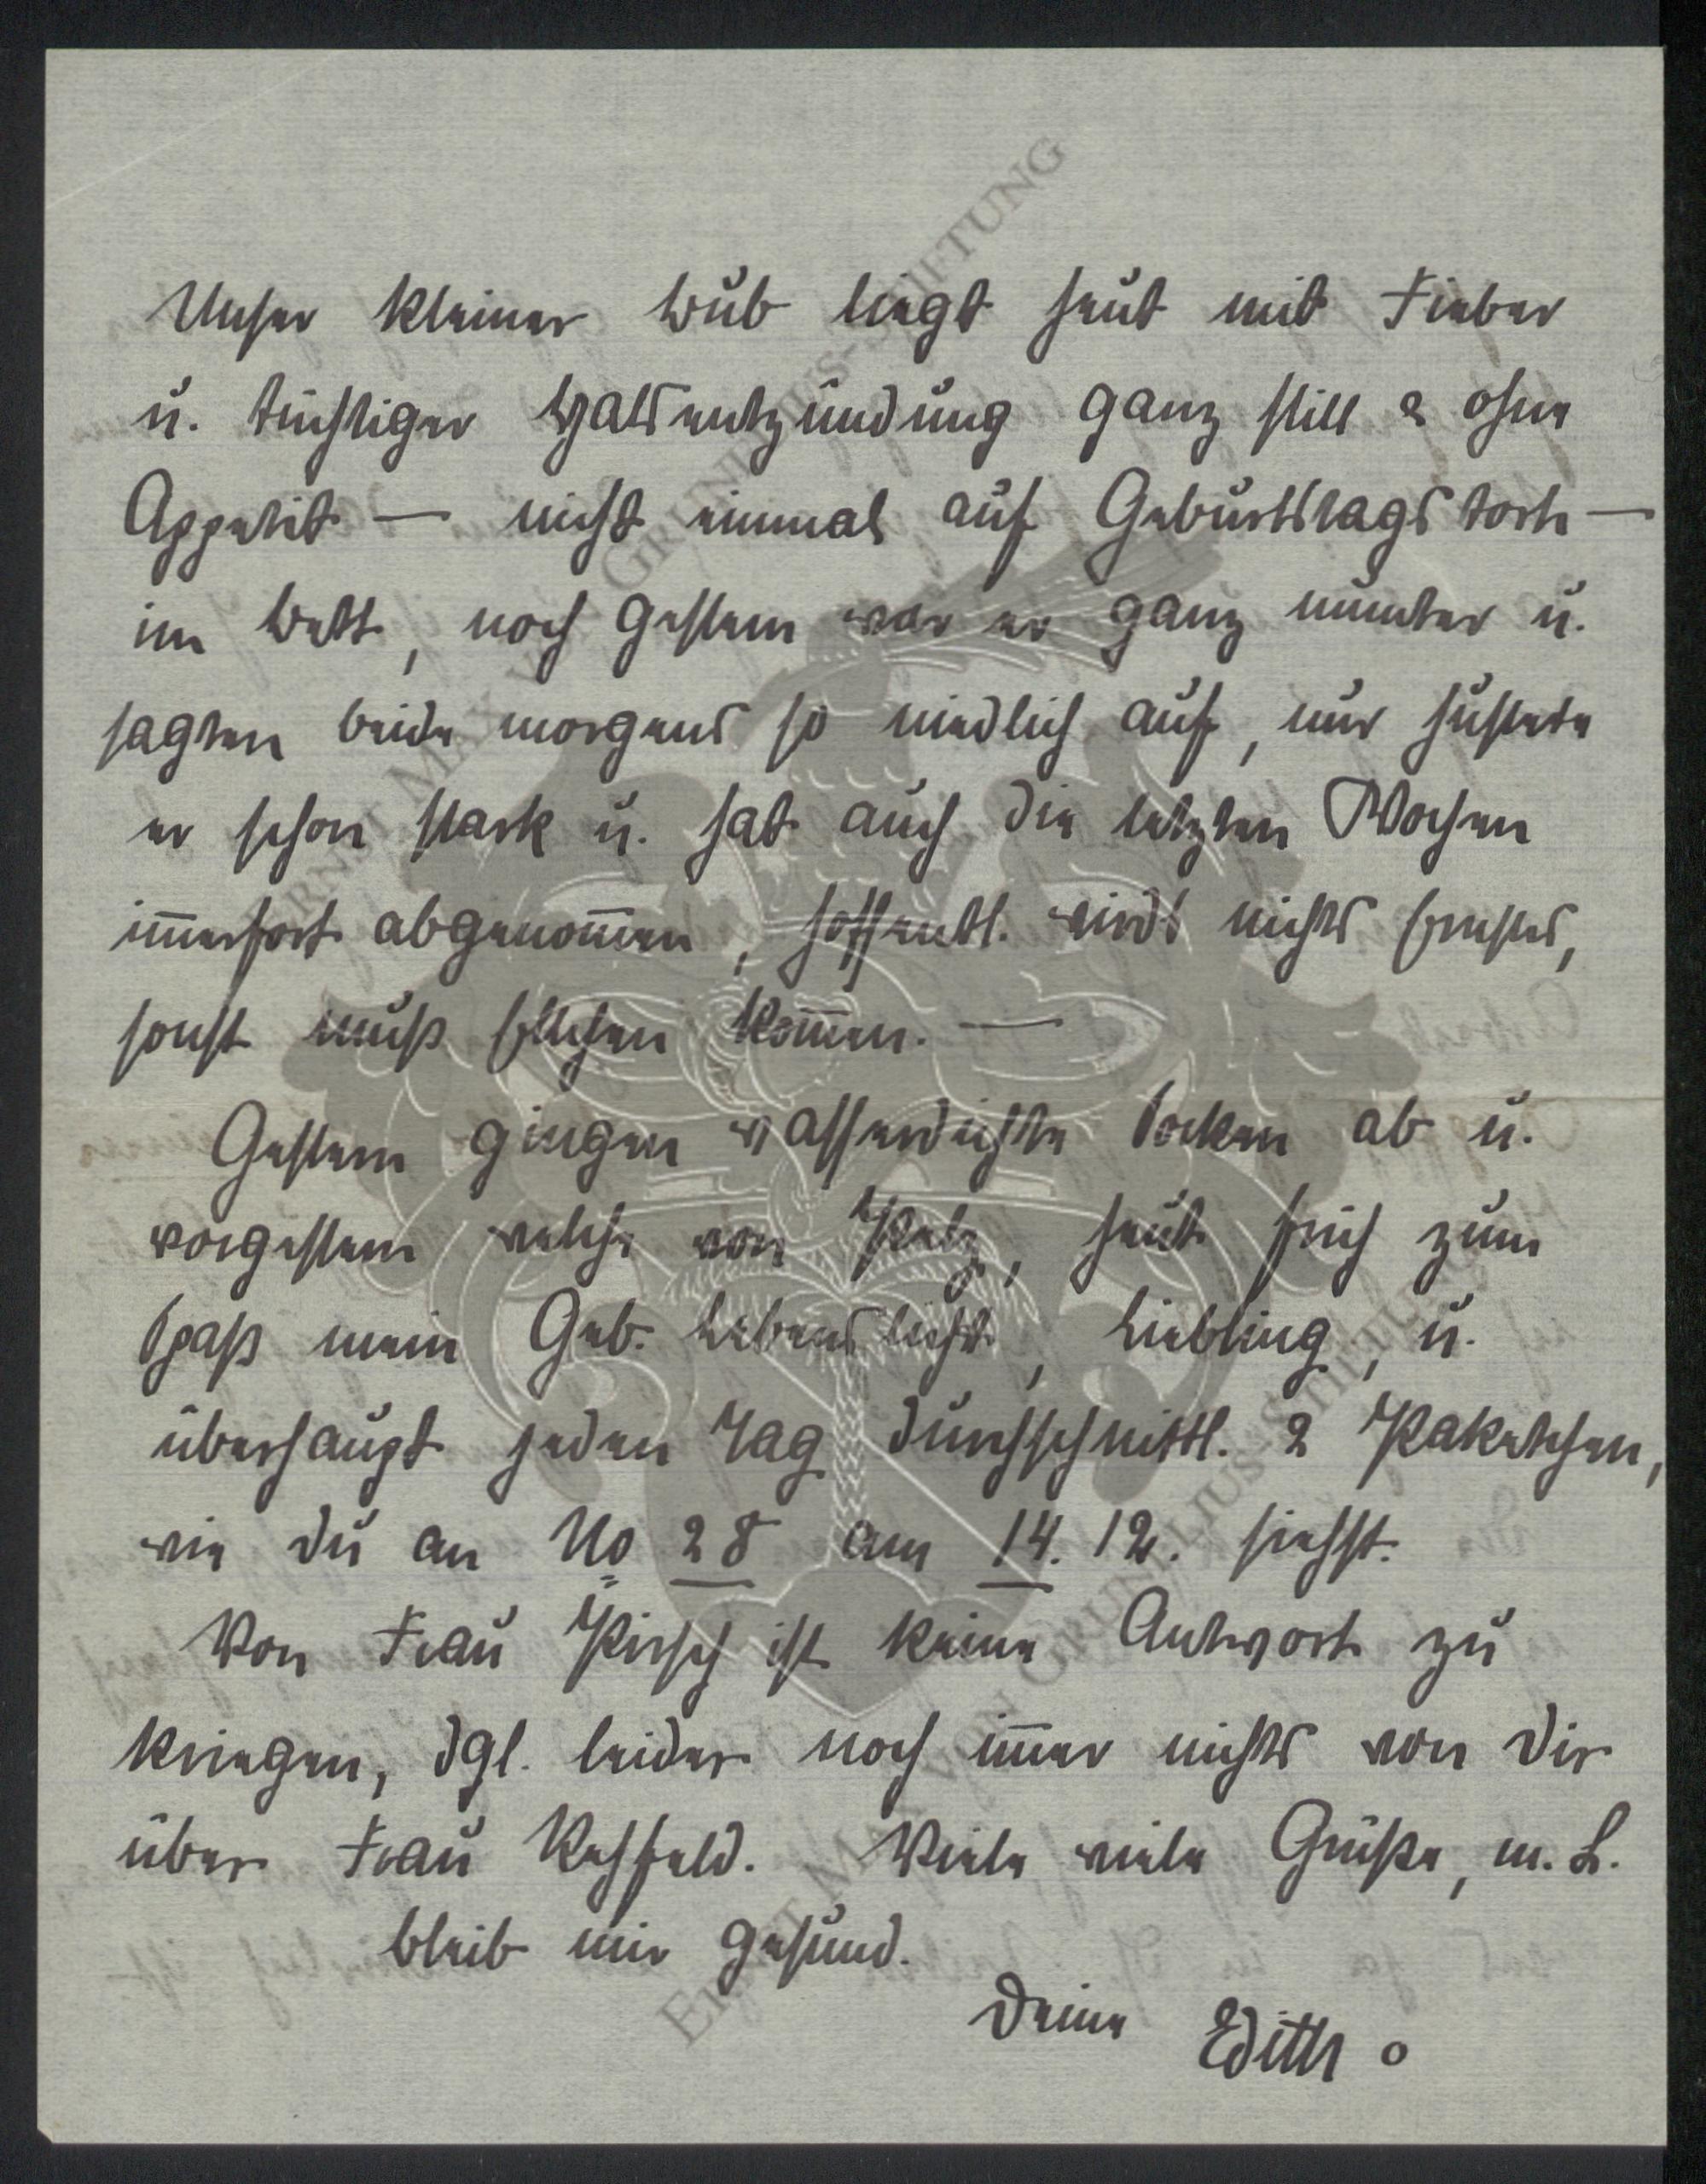 Unser kleiner Bub liegt heut mit Fieber
u. tüchtiger Halsentzündung ganz still & ohne
Appetit — nicht einmal auf Geburtstagstorte —
im Bett, noch gestern war er ganz munter u.
sagten beide morgens so niedlich auf, nur hustete
er schon stark u. hat auch die letzten Wochen
im̅erfort abgenom̅en, hoffentl. wirds nichts Ernstes,
sonst muß kom̅en. —
Gestern gingen wasserdichte Socken ab u.
vorgestern welche von Pelz, heute früh zum
Spaß mein Geb. Lebenslicht, Liebling, u.
überhaupt jeden Tag durchschnittl. 2 Paketchen,
wie du an No 28 am 14. 12. siehst.
Von Frau Kirsch ist keine Antwort zu
kriegen, dgl. leider noch im̅er nichts von Dir
über Frau Rehfeld. Viele viele Grüße, m. L.
bleib mir gesund.
Deine Edith o
ERNST MAX VON GRUNELIUS-STIFTUNG
ERNST MAX VON GRUNELIUS-STIFTUNG